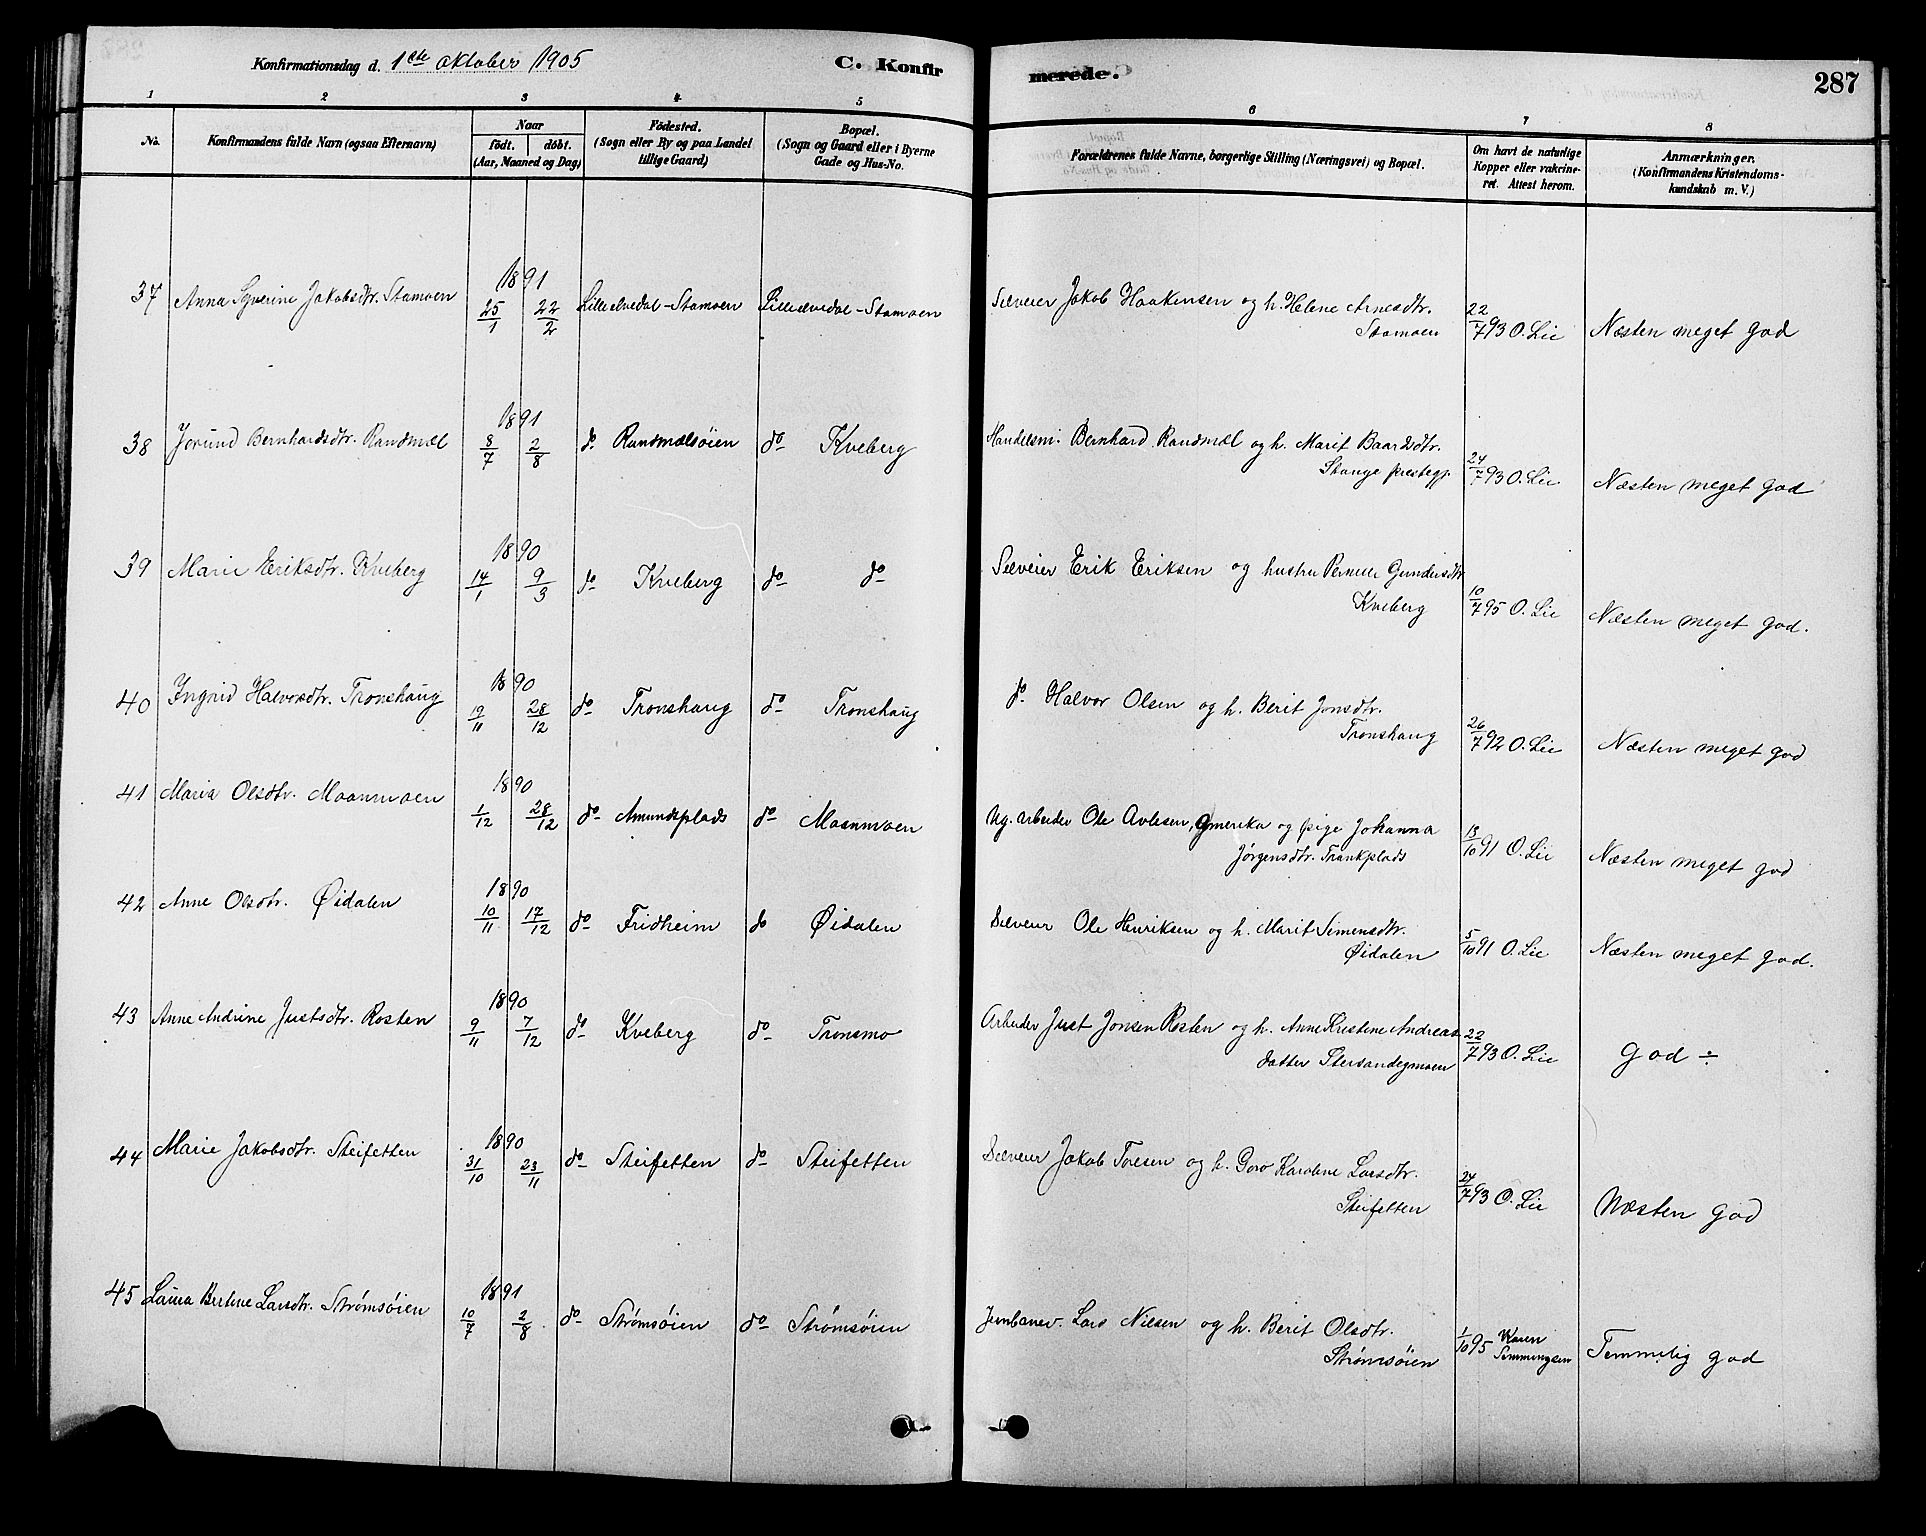 Konfirmationsdag d. 1ste Oktober 1905
C. Konfirmerede.
287
1 2 3 4 5 6 7 8
No.
Konfirmandens fulde Navn (ogsaa Efternavn)
Naar
födt. döbt.
(Aar, Maaned og Dag)
Födested.
(Sogn eller By og paa Landet
tillige Gaard)
Bopæl.
(Sogn og Gaard eller i Byerne
Gade og Hus-No.
Forældrenes fulde Navne, borgerlige Stilling (Næringsvei) og Bopæl.
Om havt de naturlige
Kopper eller vakcine-
ret. Attest herom.
Anmærkninger.
(Konfirmandens Kristendoms-
kundskab m. V.)
1891
37 Anna Syverine Jakobsdtr. Stamoen 25/1 22/2 Lilleelvedal-Stamoen Lilleelvedal-Stamoen Selveier Jakob Haakensen og h. Helene Arnesdtr.
Stamoen 22/7 93 O. Lie Næsten meget god
1891
38 Jorund Bernhardsdtr. Randmæl 8/7 2/8 do Randmælsöien do Kveberg Handelsm. Bernhard Randmæl og h. Marit Baardsdtr.
Stange prestegj. 24/7 93 O. Lie Næsten meget god
1890
39 Marie Eriksdtr. Kveberg 14/1 9/3 do Kveberg do do Selveier Erik Eriksen og hustru Pernille Gundersdtr
Kveberg 10/7 95 O. Lie Næsten meget god.
1890
40 Ingrid Halvorsdtr. Tronshaug 19/11 28/12 do Tronshaug do Tronshaug do Halvor Olsen og h. Berit Jonsdtr.
Tronshaug 26/7 92 O. Lie Næsten meget god
1890
41 Maria Olsdtr. Maanmoen 1/12 28/12 do Amundsplads do Maanmoen Ug. arbeider Ole Avlesen, Amerika og pige Johanna
Jörgensdtr. Trankplads 13/10 91 O. Lie Næsten meget god
1890
42 Anne Olsdtr. Øidalen 10/11 17/12 do Fridheim do Øidalen Selveier Ole Henriksen og h. Marit Simensdtr.
Øidalen 5/10 91 O. Lie Næsten meget god.
1890
43 Anne Andrine Justsdtr. Rosten 9/11 7/12 do Kveberg do Tronsmo Arbeider Just Jonsen Rosten og h. Anne Kristine Andreas-
datter Stersandegmoen 22/7 93 O. Lie God ÷
1890
44 Marie Jakobsdtr. Steifetten 31/10 23/11 do Steifetten do Steifetten Selveier Jakob Toresen og h. Goro Karoline Larsdtr.
Steifetten 24/7 93 O. Lie Næsten god
1891
45 Laura Bertine Larsdtr. Strømsøien 10/7 2/8 do Strømsøien do Strømsøien Jernbanev. Lars Nilsen og h. Berit Olsdtr.
Strømsøien 1/10 95 Karen Simmingsen Temmelig god